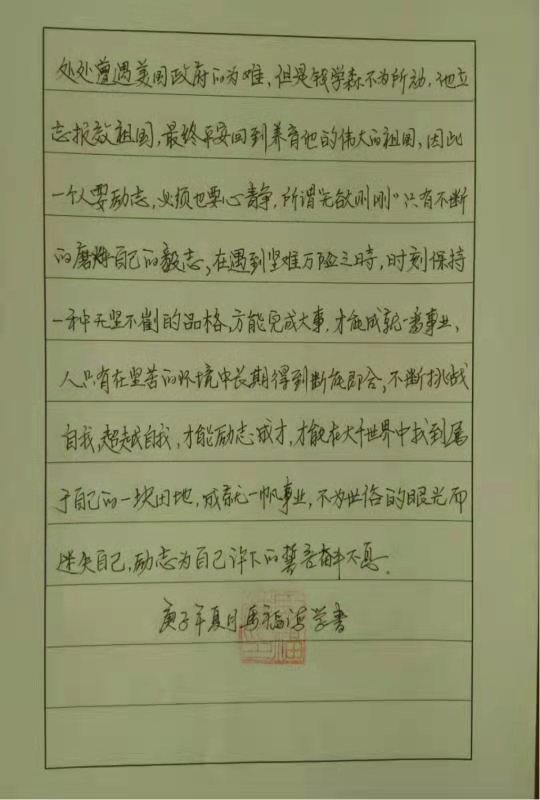 处处曾遇美国政府的为难，但是钱学森不为所动，他立
志报效祖国，最终平安回到养育他的伟大的祖国，因此
一个人要励志，必须也要心静，所谓"无欲则刚"只有不断
的磨炼自己的毅志，在遇到坚难万险之時，时刻保持
一种无坚不崔的品格，方能完成大事，才能成就一番事业，
人只有在坚苦的环境中长期得到断能即合，不断挑战
自我，超越自我，才能励志成才，才能在大千世界中找到属
于自己的一块田地，成就一帆事业，不为世俗的眼光而
迷失自己，励志为自己许下的誓言奋斗不息。
庚子年夏月马福 学书